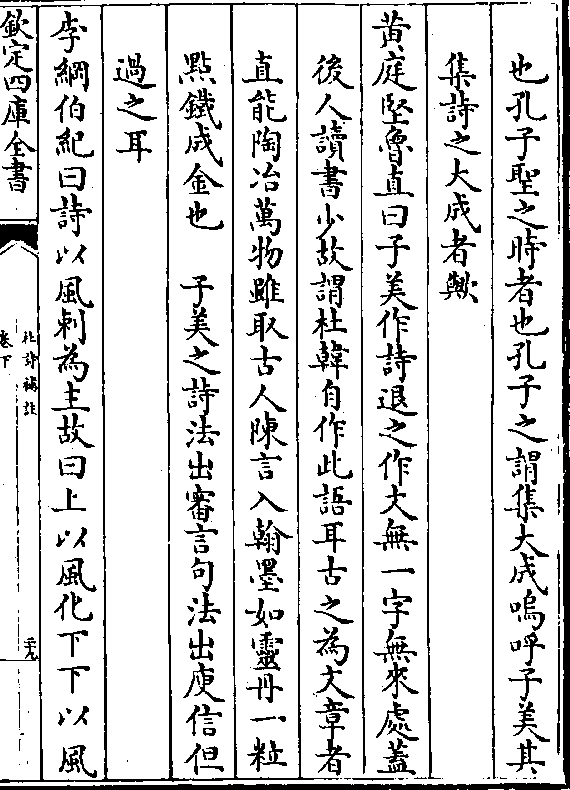 也孔子聖之時者也孔子之謂集大成嗚呼子美其
集詩之大成者歟
黄庭堅魯直曰子美作詩退之作文無一字無來處蓋
後人讀書少故謂杜韓自作此語耳古之為文章者
直能陶冶萬物雖取古人陳言入翰墨如靈丹一粒
點鐵成金也　子美之詩法出審言句法出庾信但
過之耳
李綱伯紀曰詩以風刺為主故曰上以風化下下以風
欽定四庫全書
杜詩補註
卷下
二十九